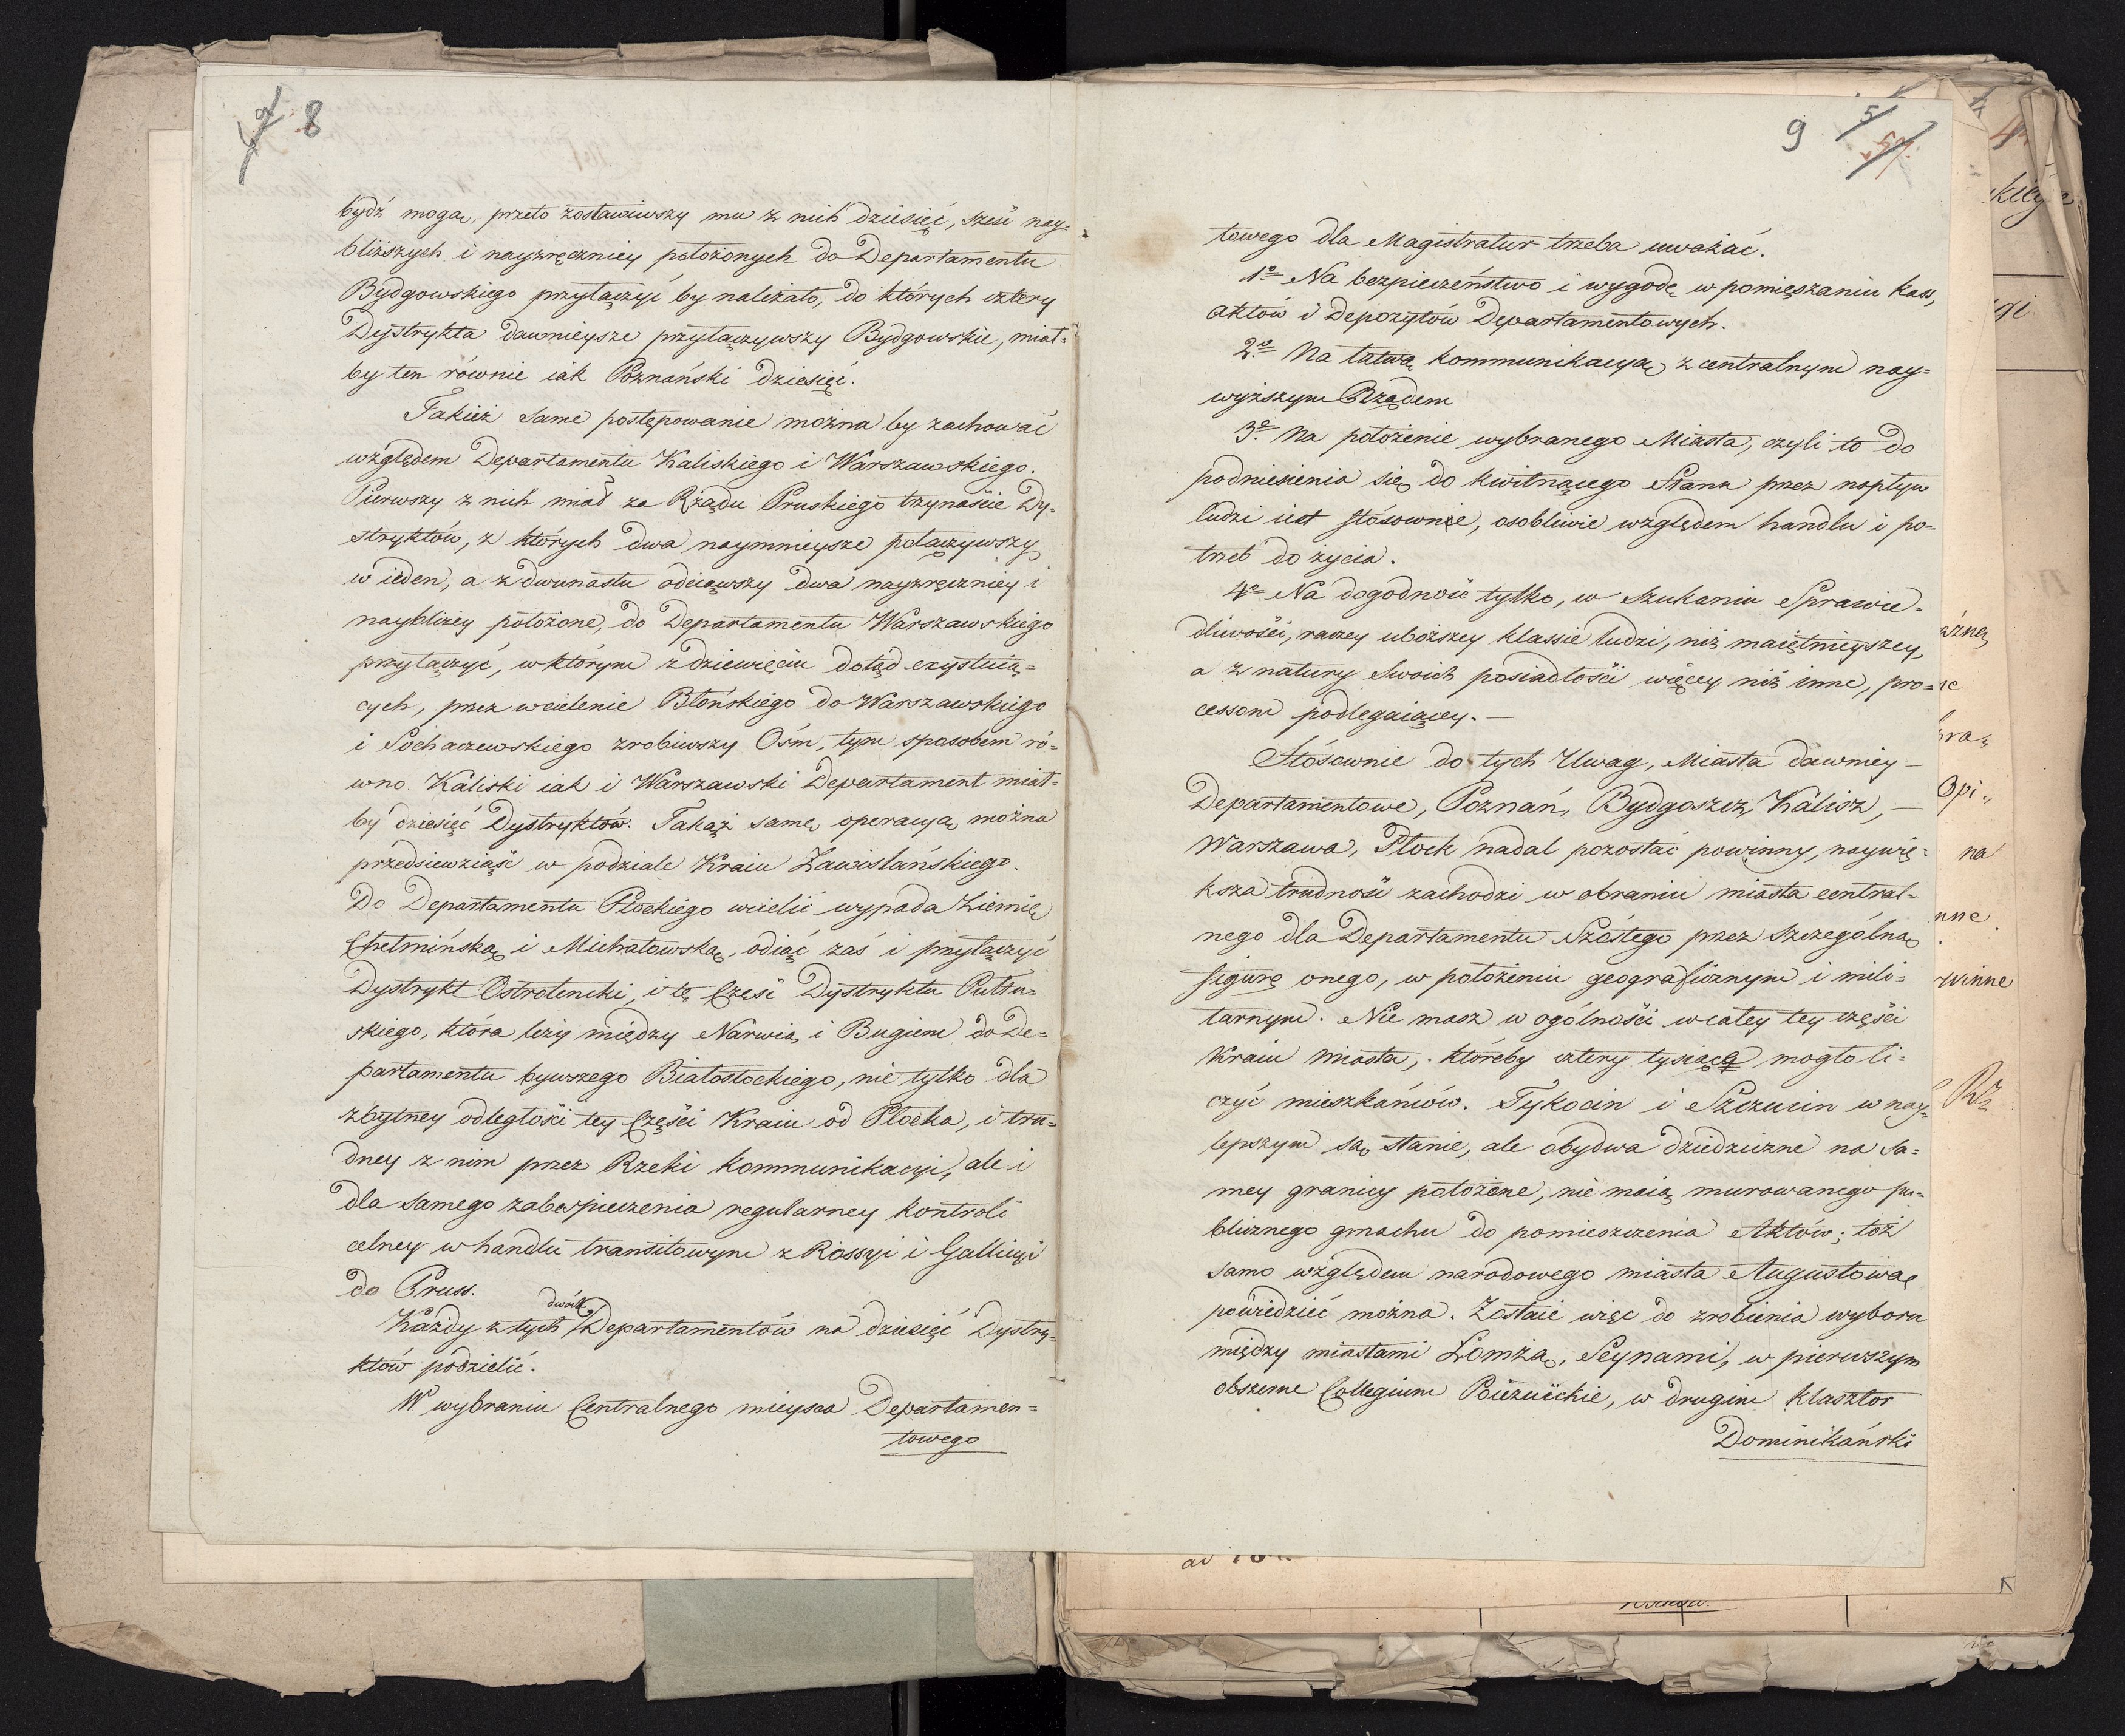 8
bydź mogą, przeto zostawiwszy mu z nich dziesięć, sześć nay=
bliższych i nayzręczniey położonych do Departamentu
Bydgowskiego przyłączyć by należało, do których cztery
Dystrykta dawnieysze przyłączywszy Bydgowskie, miał=
by ten równie iak Poznański dziesięć.
Takież same postępowanie można by zachować
względem Departamentu Kaliskiego i Warszawskiego.
Pierwszy z nich miał za Rządu Pruskiego trzynaście Dy=
stryktów, z których dwa naymnieysze połączywszy
w ieden, a z dwunastu odciąwszy dwa nayzręczniey i
naybliżey położone, do Departamentu Warszawskiego
przyłączyć, w którym z dziewięciu dotąd exystuią=
cych, przez wcielenie Błońskiego do Warszawskiego
i Sochaczewskiego zrobiwszy Ośm, tym sposobem ró=
wno Kaliski iak i Warszawski Departament miał=
by dziesięć Dystryktów. Takąż samę operacyą można
przedsiewziąść w podziale Kraiu Zawislańskiego.
Do Departamentu Płockiego wcielić wypada Ziemię
Chełmińską i Michałowską, odiąć zaś i przyłączyć
Dystrykt Ostrołencki, i tę Część Dystryktu Pułtu=
skiego, która leży między Narwią i Bugiem do De=
partamentu bywszego Białostockiego, nie tylko dla
zbytney odległości tey Części Kraiu od Płocka, i tru=
dney z nim przez Rzeki kommunikacyi, ale i
dla samego zabezpieczenia regularney kontroli
celney w handlu transitowym z Rossyi i Gallicyi
do Pruss.
dwóch
Każdy z tych Departamentów na dziesięć Dystry=
któw podzielić.
W wybraniu Centralnego mieysca Departamen=
towego
9
towego dla Magistratur trzeba uważać.
1o Na bezpieczeństwo i wygodę w pomięszaniu Kass,
aktów i Depozytów Departamentowych.
2o Na łatwą kommunikacyą z centralnym nay=
wyższym Rządem
3o Na położenie wybranego Miasta, czyli to do
podniesienia się do kwitnącego Stanu przez napływ
ludzi iest stósownie, osobliwie względem handlu i po=
trzeb do życia.
4o Na dogodność tylko, w szukaniu Sprawie=
dliwości, raczey uboższey klassie ludzi, niż maiętnieyszey,
a z natury swoich posiadłości więcey niż inne, pro=
cessom podlegaiącey. —
Stósownie do tych Uwag, Miasta dawniey —
Departamentowe, Poznań, Bydgoszcz, Kalisz, —
Warszawa, Płock nadal pozostać powinny, naywię=
ksza trudność zachodzi w obraniu miasta central=
nego dla Departamentu Szóstego przez szczególną
figurę onego, w położeniu geograficznym i mili=
tarnym. Nie masz w ogólności w całey tey części
Kraiu miasta, któreby cztery tysiące mogło li=
czyć mieszkańców. Tykocin i Szczucin w nay=
lepszym są stanie, ale obydwa dziedziczne na sa=
mey granicy położone, nie maią murowanego pu=
blicznego gmachu do pomieszczenia Aktów; toż
samo względem narodowego miasta Augustowa
powiedzieć można. Zostaie więc do zrobienia wyboru
między miastami Łomżą, Seynami, w pierwszym
obszerne Collegium Poiezuickie, w drugim Klasztor
Dominikański